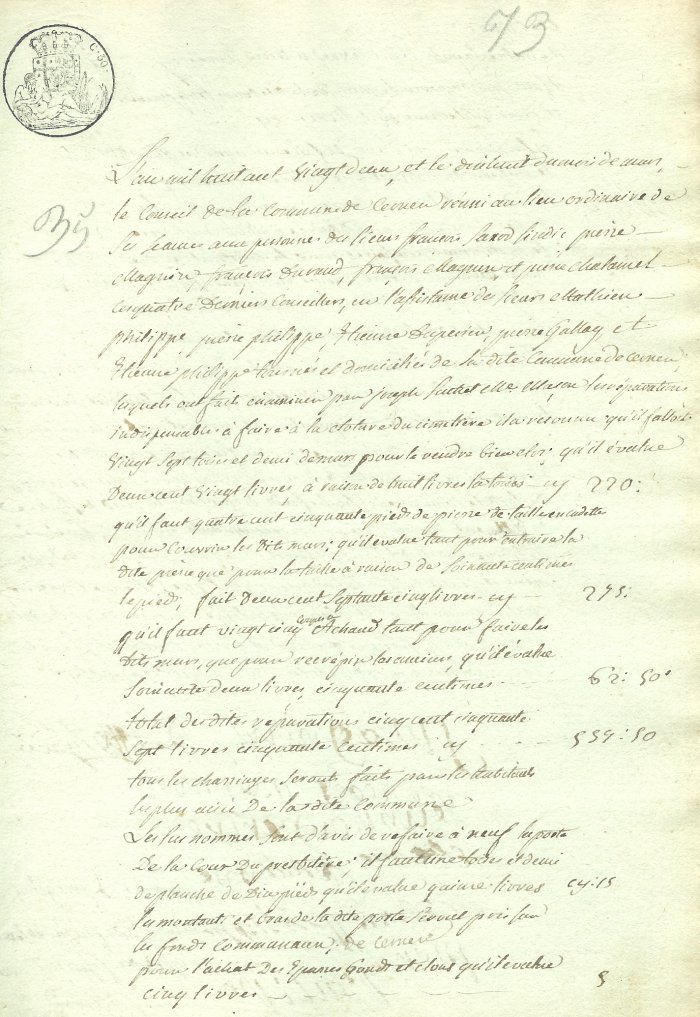 73
C. 50.
35
L'an mil huit cent vingt deux, et le dixhuit du mois de mars,
le Conseil de la Commune de Cernex réuni au lieu ordinaire de
ses séances aux personnes des sieurs françois Saxod sindic pierre
Magnin, françois Duraud, françois Magnin et pierre Chatamel
les quatre derniers Conseillers, en l'assistance des sieurs Mathieu
philippe, pierre philippe Etienne Dupessieu, pierre Gallay et
Etienne philippe tous nés et domiciliés de la dite Commune de Cernex;
lesquels ont fait éxaminer par joseph Me Masson les réparations
indispensable à faire à la cloture du cimetière il a reconnu qu'il falloit
Vingt sept toises et demi de mur pour le rendre bien clos; qu'il évalue
Deux cent vingt livres, à raison de huit livres la toise cy 220:
qu'il faut quatre cent cinquante piéds de pierre de taille en cadette
pour couvrir les dits murs; qu'il évalue tant pour extraire la
dite pierre que pour la taille à raison de soixante centimes
le pied; fait Deux cent septante cinq livres cy 275:
qu'il faut vingt cinq Coupes de chaud tant pour faire les
dits murs, que pour recrépir les anciens, qu'il évalue
soixante deux livres, cinquante centimes 62: 50
total des dites réparations cinq cent cinquante
sept livres cinquante centimes cy 557: 50
tous les charriages seront faits par les habitants
les plus aisés De la dite Commune
Les sus nommés sont d'avis de refaire à neuf la porte
De la Cour Du presbitère; il faut une toise et demi
de planche de Dix piéds qu'il évalue quinze livres cy. 15
les montants et bras de la dite porte seront pris sur
les fonds Communaux, de Cernex
pour l'achat Des Epares Gonds et clous qu'il évalue
cinq livres 5